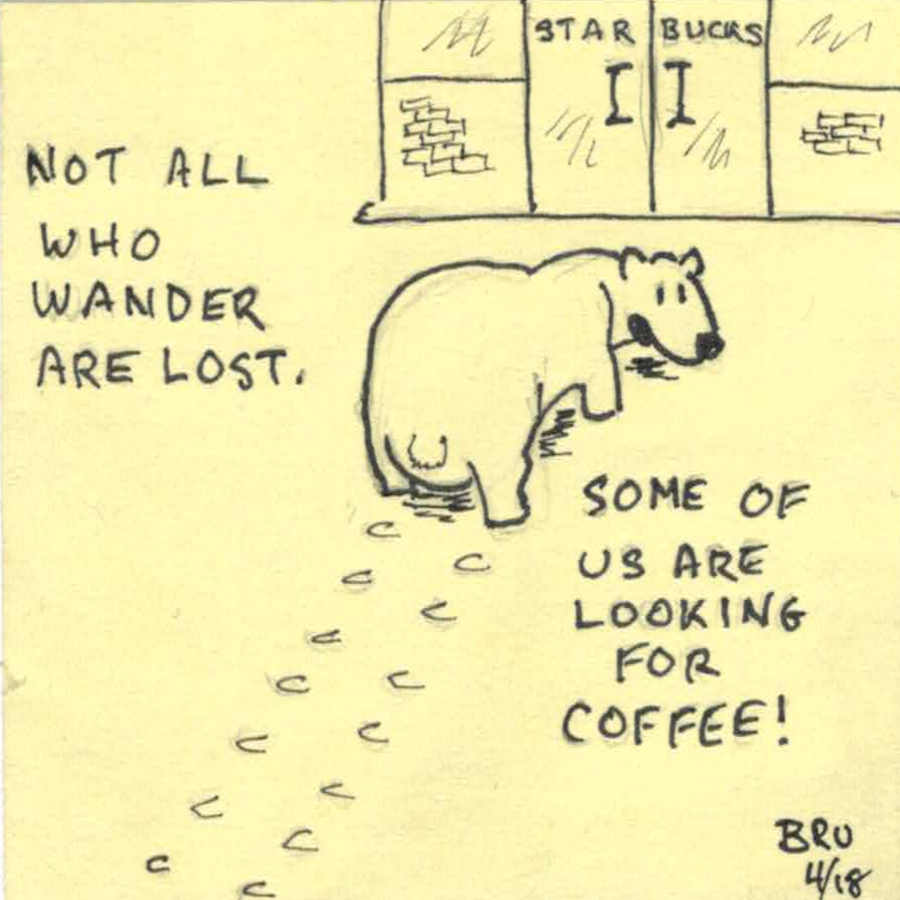 STAR BUCKS
NOT ALL
WHO
WANDER
ARE LOST.
SOME OF
US ARE
LOOKING
FOR
COFFEE!
BRU
4/18